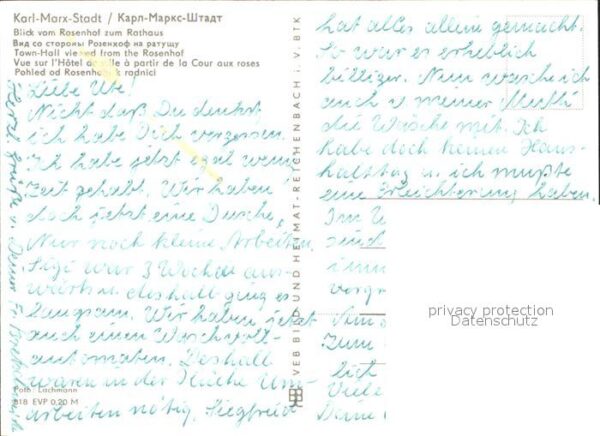 Karl-Marx-Stadt / Карл-Маркс-Штадт
Blick vom Rosenhof zum Rathaus
Вид со стороны Розенхоф на ратушу
Town-Hall viewed from the Rosenhof
Vue sur l'Hôtel de ville à partir de la Cour aux roses
Pohled od Rosenhof k radnici
Liebe Ute!
Nicht daß Du denkst,
ich habe Dich vergessen.
Ich habe jetzt egal wenig
Zeit gehabt. Wir haben
doch jetzt eine Dusche,
Nur noch kleine Arbeiten.
Sigi war 3 Wochen aus-
wärts u. deshalb ging es
langsam. Wir haben jetzt
auch einen Waschvoll-
automaten. Deshalb
waren in der Küche Um-
arbeiten nötig. Siegfried
Foto: Lachmann
818 EVP 0,20 M
Herzl. Grüße v. Deiner
VEB BILD UND HEIMAT · REICHENBACH i. V. BTK
hat alles allein gemacht.
So war es erheblich
billiger. Nun wasche ich
auch v. meiner Mutti
die Wäsche mit. Ich
habe doch keinen Haus-
haltstag u. ich mußte
eine Erleichterung haben.
Im
sind
imm
vorg
zum
lich
Viele
Deine
privacy protection
Datenschutz